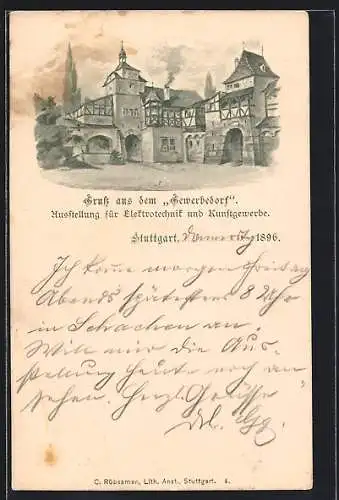 Gruß aus dem „Gewerbedorf".
Ausstellung für Elektrotechnik und Kunstgewerbe.
Stuttgart, Donnerstg 1896.
Ich komme morgen Freitag
Abends spätestens 8 Uhr
in Schachen an.
Will mir die Aus-
stellung heute noch an
sehen. Herzl. Grüsse
C. Rübsamen, Lith. Anst., Stuttgart.